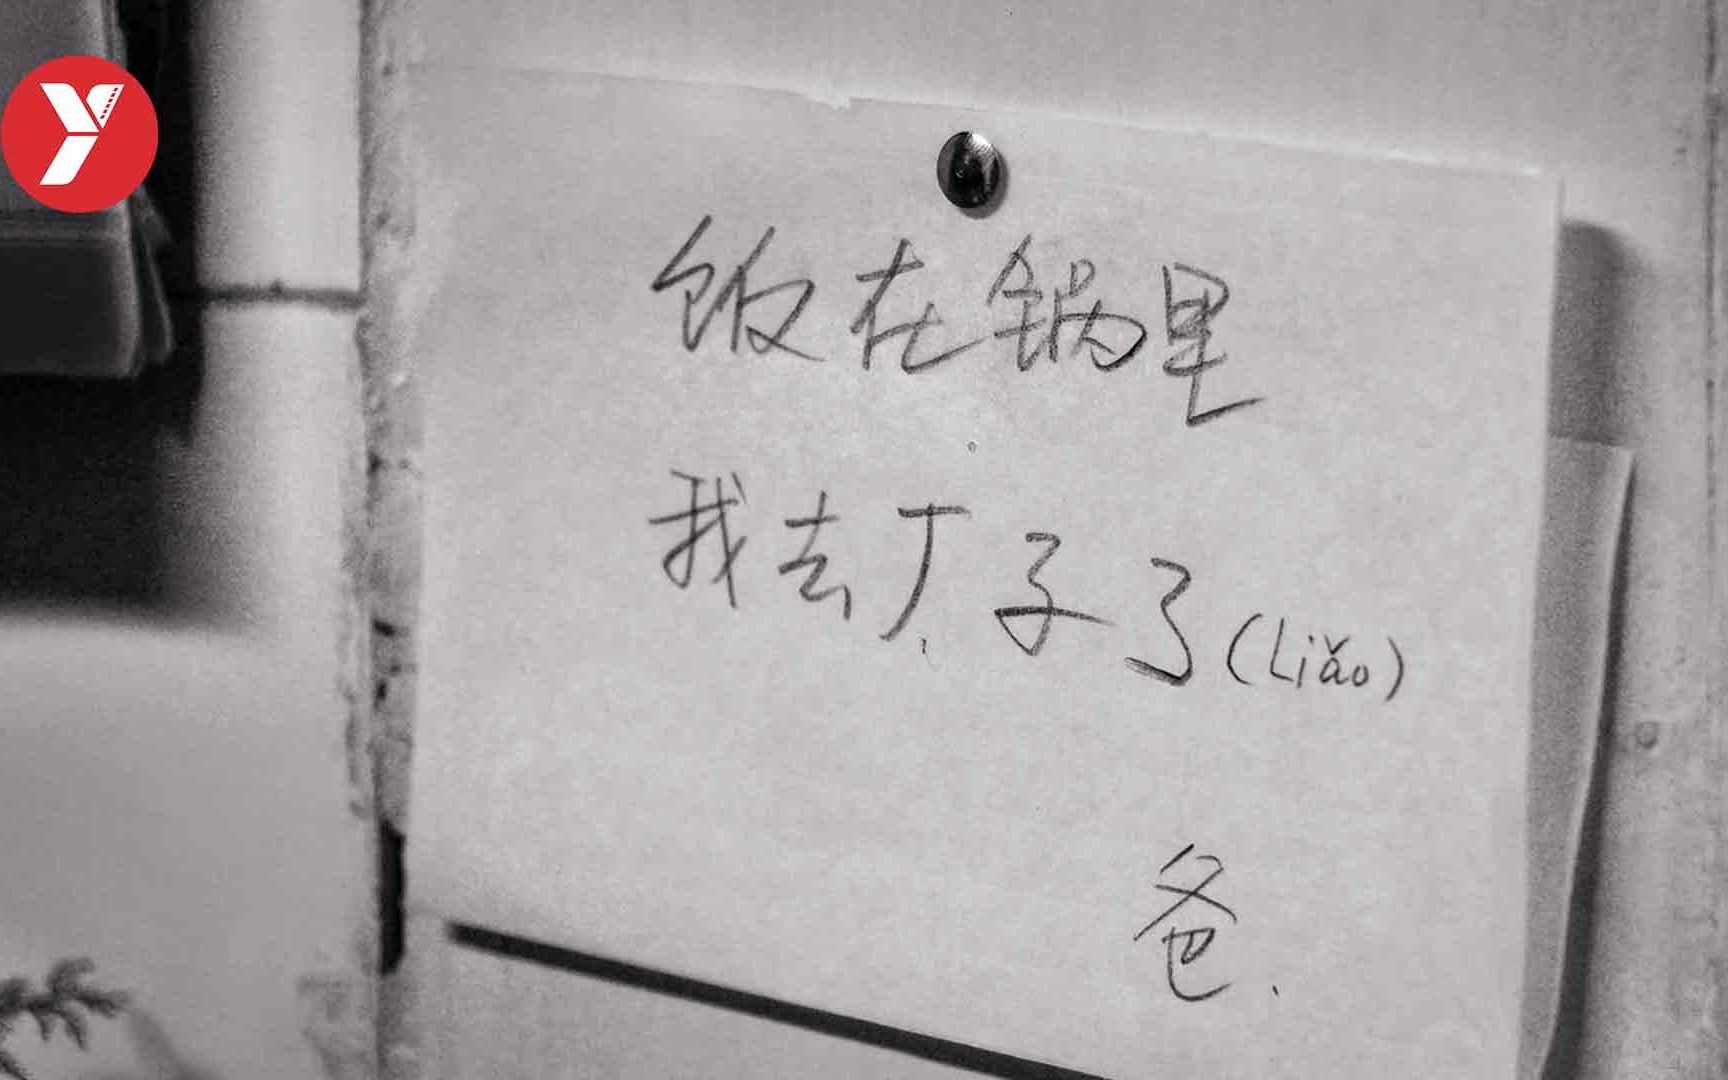 饭在锅里
我去厂子了(Liǎo)
爸.